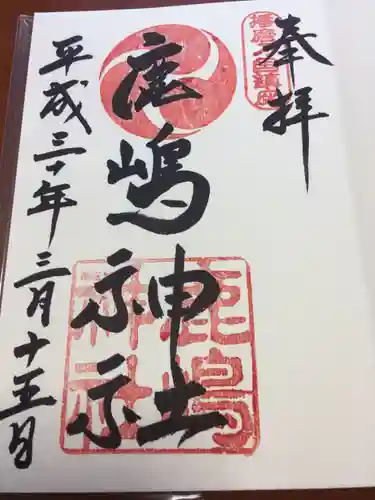 奉拝
鹿嶋神社
平成三十年三月十五日
鹿嶋
神社